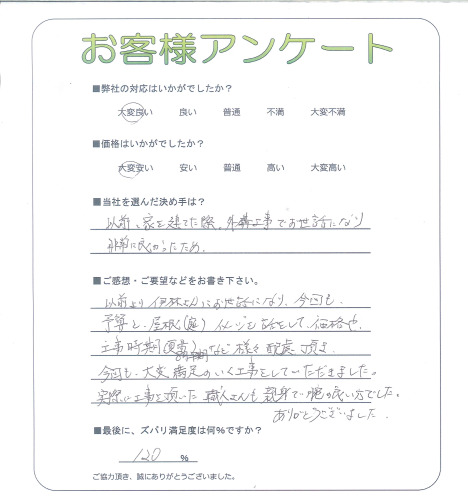 お客様アンケート
■弊社の対応はいかがでしたか？
大変良い 良い 普通 不満 大変不満
■価格はいかがでしたか？
大変安い 安い 普通 高い 大変高い
■当社を選んだ決め手は？
以前、家を建てた際、外構工事でお世話になり
非常に良かったため。
■ご感想・ご要望などをお書き下さい。
以前より伊林さんにお世話になり、今回も、
予算と、屋根(庭)イメージを話をして、価格や、
工事時期(夏季)など様々配慮頂き
今回も、大変満足のいく工事をしていただきました。
実際に工事を頂いた職人さんも親身で、腕の良い方でした。
ありがとうございました。
■最後に、ズバリ満足度は何％ですか？
120 ％
ご協力頂き、誠にありがとうございました。